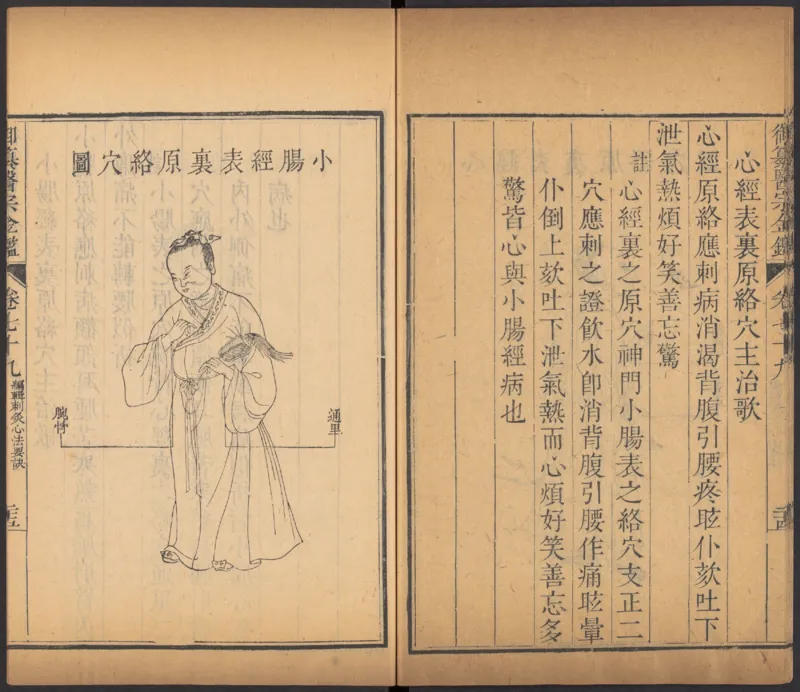 御纂醫宗金鑑
卷七十九
心經表裏原絡穴主治歌
心經原絡應刺病消渴背腹引腰疼眩仆欬吐下
泄氣熱煩好笑善忘驚
註
心經裏之原穴神門小腸表之絡穴支正二
穴應刺之證飲水卽消背腹引腰作痛眩暈
仆倒上欬吐下泄氣熱而心煩好笑善忘多
驚皆心與小腸經病也
小腸經表裏原絡穴圖
通里
腕骨
御纂醫宗金鑑
卷七十九
編輯刺灸心法要訣